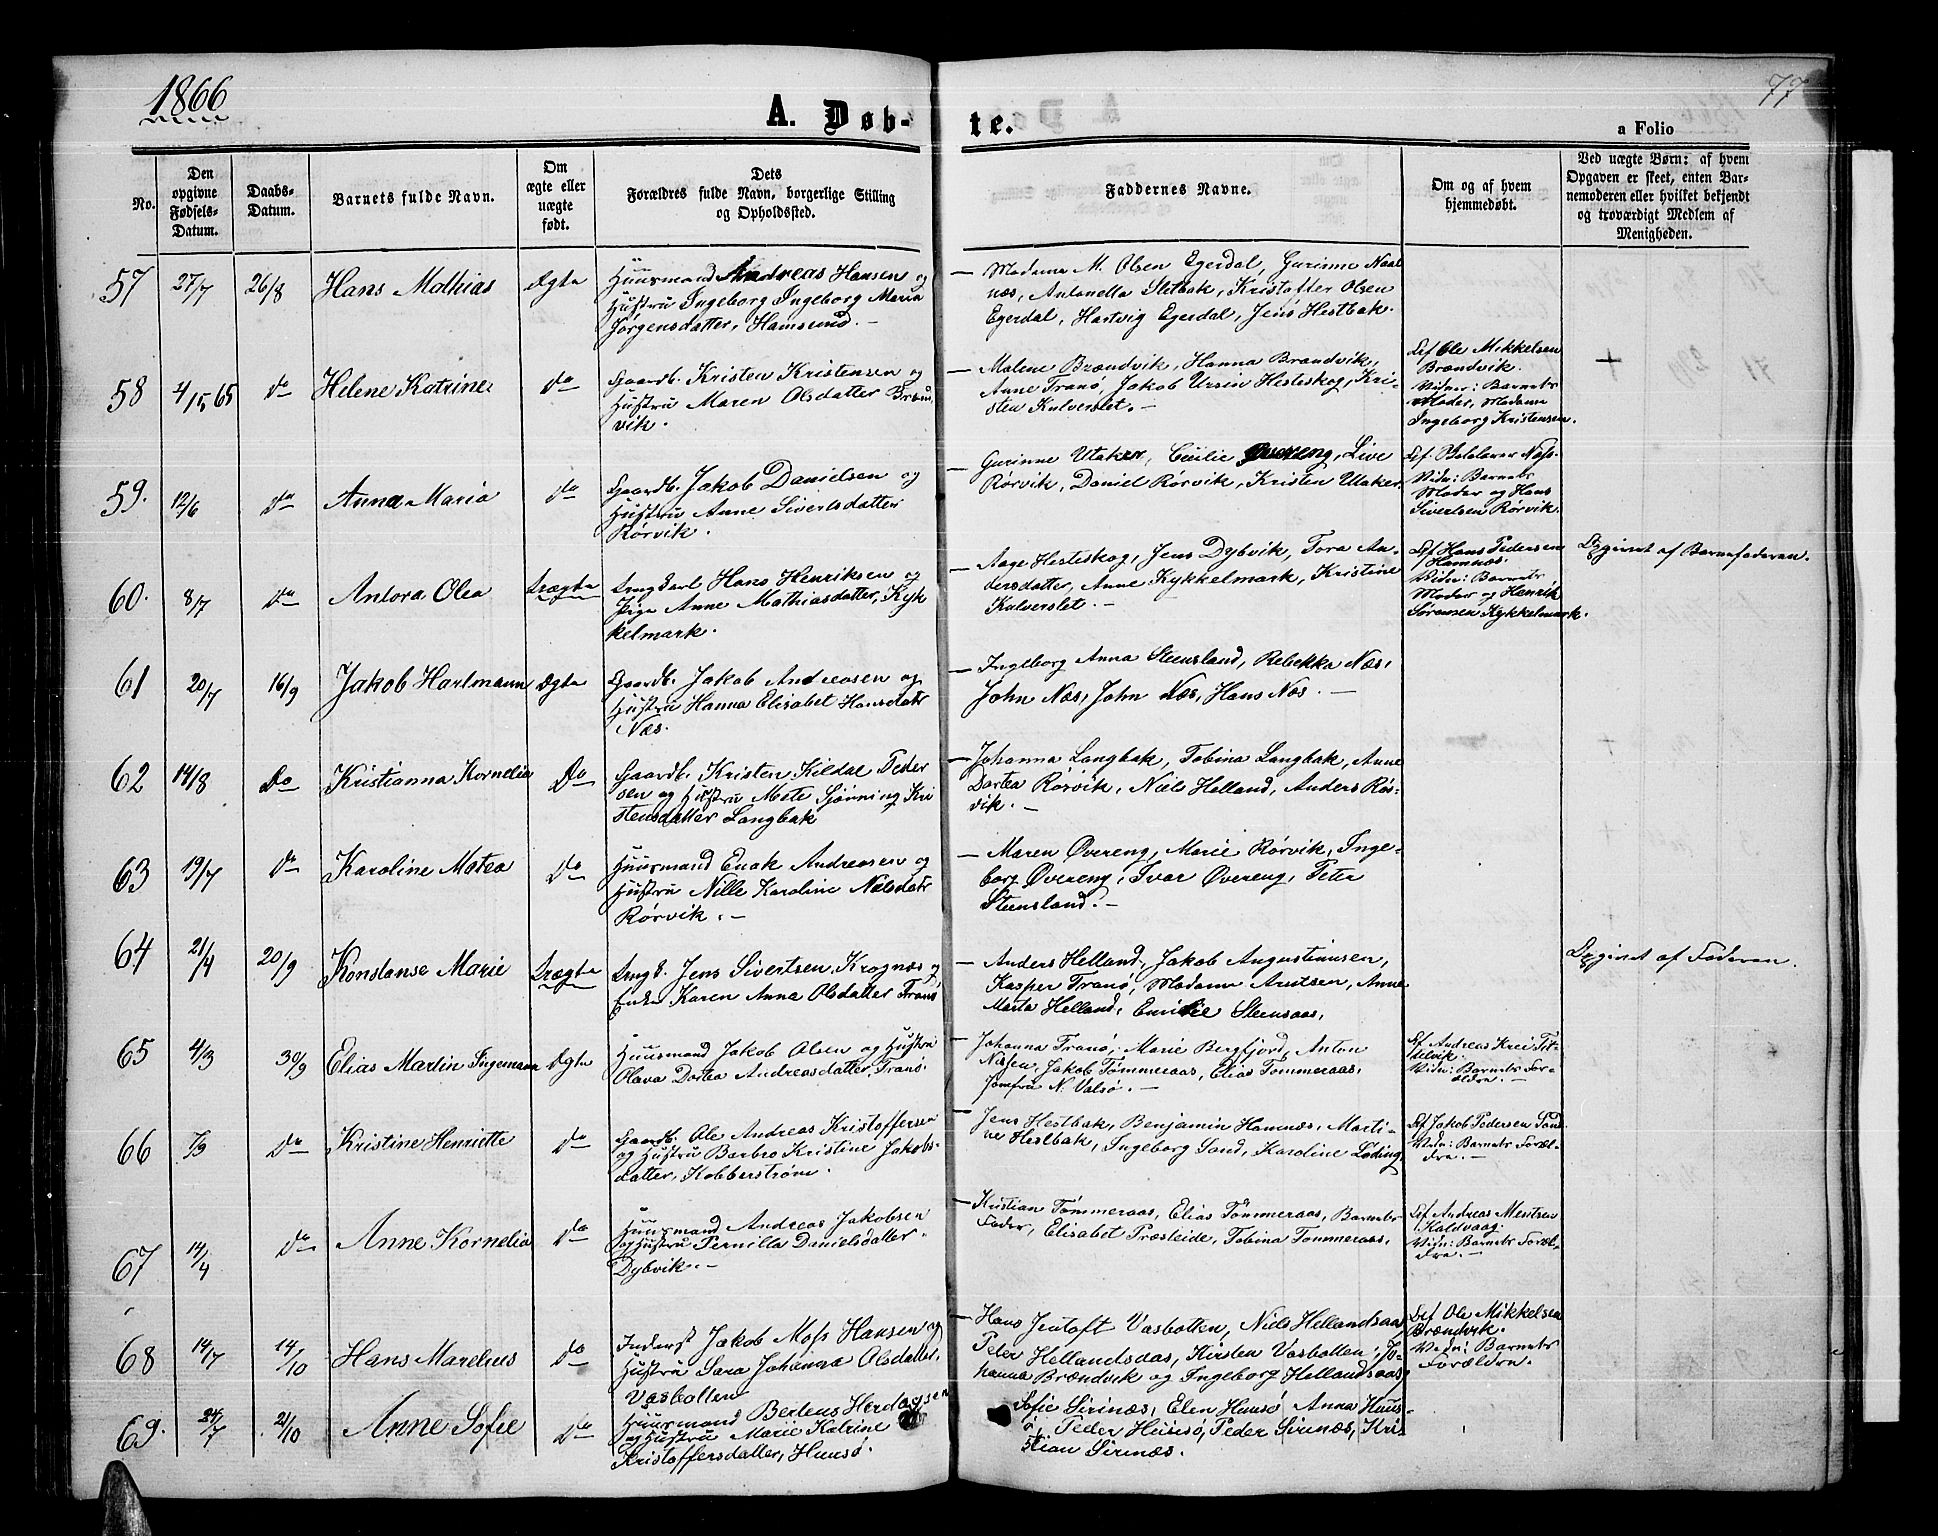 1866
77
A. Døb-
te.
a Folio
No.
Den
opgivne
Fødsels-
Datum.
Daabs-
Datum.
Barnets fulde Navn.
Om
ægte eller
uægte
født.
Dets
Forældres fulde Navn, borgerlige Stilling
og Opholdssted.
Faddernes Navne.
Om og af hvem
hjemmedøbt.
Ved uægte Børn: af hvem
Opgaven er skeet, enten Bar-
nemoderen eller hvilket bekjendt
og troværdigt Medlem af
Menigheden.
57 27/7 26/8 Hans Mathias Ægte
Huusmand Andreas Hansen og
Hustru Ingeborg Ingeborg Maria
Jørgensdatter, Hamsund. -
- Madame M. Olsen Egerdal, Gurinne Naal
næs, Antonella Slitbak, Kristoffer Olsen
Egerdal, Hartvig Egerdal, Jens Hestbak.
58 4/15 65 Do Helene Katrine Do
Gaardb. Kristen Kristensen og
Hustru Maren Olsdatter Brænd
vik.
- Malene Brændvik, Hanna Brændvik,
Anne Tranø, Jakob Ursin Hesteskog, Kri-
sten Kulverslet. -
Af Ole Mikkelsen
Brændvik.
Vidner: Barnets
Moder, Madame
Ingeborg Kristensen.
+
59. 12/6 Do Anna Maria Do
Gaardb. Jakob Danielsen og
Hustru Anne Sivertsdatter
Rørvik.
- Gurinne Utaker, Cecilie Øvereng, Live
Rørvik, Daniel Rørvik, Kristen Utaker.
Vidn: Barnets
Moder og Hans
Sivertsen Rørvik.
60. 8/7 Do Antora Olea Uægte
Ungkarl Hans Henriksen og
Pige Anne Mathiasdatter, Kyk
kelmark.
- Aage Hesteskog, Jens Dybvik, Tora An-
dersdatter, Anne Kykkelmark, Kristine
Kulverslet. -
Af Hans Pedersen
Hamnæs.
Vidn: Barnets
Moder og Henrik
Sørensen Kykkelmark.
Opgivet af Barnefaderen.
61 20/7 16/9 Jakob Hartmann Ægte
Gaardb. Jakob Andreasen og
Hustru Hanna Elisabet Hansdatr
Næs.
- Ingeborg Anna Steensland, Rebekka Næs,
John Næs, John Næs, Hans Næs. -
62 14/8 Do Kristianna Kornelia Do
Gaardb. Kristen Kildal Peder
sen og Hustru Mete Sjønning Kri
stensdatter Langbak
- Johanna Langbak, Tobina Langbak, Anne
Dortea Rørvik, Niels Helland, Anders Rør-
vik. -
63 19/7 Do Karoline Matea Do
Huusmand Enok Andreasen og
Hustru Nille Karoline Nielsdatr
Rørvik. -
- Maren Øvereng, Marie Rørvik, Inge-
borg Øvereng, Ivar Øvereng, Peter
Steensland. -
64 21/4 20/9 Konstanse Marie Uægte
Ungk. Jens Sivertsen, Krognæs og
Enke Karen Anna Olsdatter Tranø
- Anders Helland, Jakob Augustinusen,
Kasper Tranø, Madame Arntsen, Anne
Marta Helland, Emilie Steensaas,
Opgivet af Faderen.
65 4/3 30/9 Elias Martin Ingemann Ægte
Huusmand Jakob Olsen og Hustru
Olava Dortea Andreasdatter, Tranø.
- Johanna Tranø, Marie Bergfjord, Anton
Nissen, Jakob Tømmeraas, Elias Tømmeraas,
Jomfru N. Valsø. -
Vidn: Barnets For-
ældre. -
66 7/3 Do Kristine Henriette Do
Gaardb. Ole Andreas Kristoffersen
og Hustru Barbro Kristine Jakobs-
datter, Kobberstrøm.
- Jens Hestbak, Benjamin Hamnæs, Marti-
ne Hestbak, Ingeborg Sand, Karoline Løding,
Af Jakob Pedersen Sand
Vidn: Barnets Foræl-
dre. -
67 14/4 Do Anne Kornelia Do
Huusmand Andreas Jakobsen
og Hustru Pernilla Danielsdatter.
Dybvik. -
- Kristian Tømmeraas, Elias Tømmeraas, Barnets
Fader, Elisabet Præsteide, Tobina Tømmeraas,
Af Andreas Mentsen
Kaldvaag:
Vidn: Barnets Foræl-
dre. -
68 14/7 14/10 Hans Marelius Do
Inderst Jakob Moss Hansen og
Hustru Sara Johanna Olsdatter,
Vasbotten
- Hans Jentoft Vasbotten, Niels Hellandsaa,
Peter Hellandsaas, Kirsten Vasbotten, Jo-
hanna Brændvik og Ingeborg Hellandsaas
Af Ole Mikkelsen
Brændvik.
Vidn: Barnets
Forældre.
69. 24/7 21/10 Anne Sofie Do
Huusmand Berteus Herdagsen
og Hustru Marie Katrine
Kristoffersdatter, Huusø.
Sofie Sirinæs, Elen Huusø, Anna Huus-
ø, Peder Huusø, Peder Sirinæs, Kri-
stian Sirinæs.